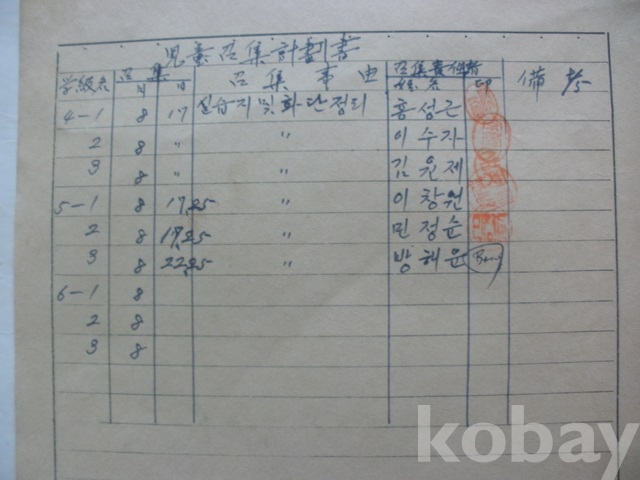 児童召集計劃書
学級名 召集 月 日 召集事由 召集責任者 姓名 印 備考
4-1 8 17 실습지 및 화단정리 홍성근
2 8 〃 〃 이수자
3 8 〃 〃 김원제
5-1 8 17,25 〃 이창원
2 8 18,25 〃 민정순
3 8 22,25 〃 방해윤
6-1 8
2 8
3 8
kobay